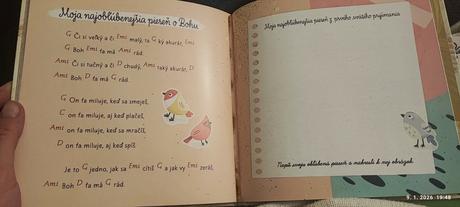 Moja najobľúbenejšia pieseň o Bohu
G Či si veľký a či Emi malý, ta G ký akurát, Emi
G Boh Emi ťa má Ami rád.
Ami Či si tučný a či D chudý, Ami taký akurát, D
Ami Boh D ťa má G rád.
G On ťa miluje, keď sa smeješ,
C on ťa miluje, aj keď plačeš,
Ami on ťa miluje, keď sa mračíš,
D on ťa miluje, aj keď spíš.
Je to G jedno, jak sa Emi cítiš G a jak vy Emi zeráš,
Ami Boh D ťa má G rád.
Moja najobľúbenejšia pieseň z prvého svätého prijímania
Napíš svoju obľúbenú pieseň a nakresli k nej obrázok.
9. 1. 2026 19:48